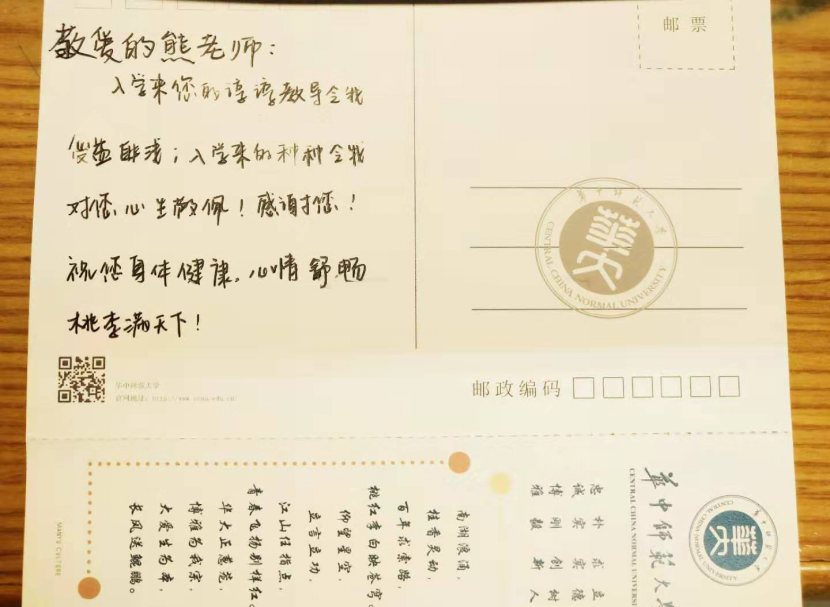 敬爱的熊老师：
入学来您的谆谆教导令我
受益匪浅；入学来的种种令我
对您心生敬佩！感谢您！
祝您身体健康，心情舒畅
桃李满天下！
邮票
华中师范大学
CENTRAL CHINA NORMAL UNIVERSITY
华中师范大学
官网地址：http://www.ccnu.edu.cn/
邮政编码
南湖浪涌，
桂香灵动，
百年求索路，
桃红李白映苍穹。
仰望星空，
立言立功，
江山任指点，
青春飞扬别样红。
华大正葱茏，
博雅为我宗，
大爱生为本，
长风送鲲鹏。
忠诚博雅
朴实刚毅
求实创新
立德树人
华中师范大
CENTRAL CHINA NORMAL UNIVERS
华中师范大学
CENTRAL CHINA NORMAL UNIVERSITY